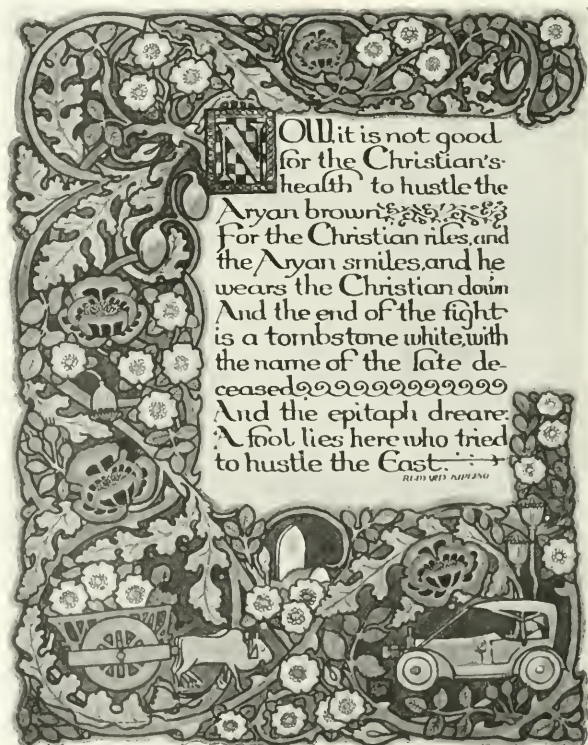 NOW it is not good
for the Christian's
health to hustle the
Aryan brown,
For the Christian riles, and
the Aryan smiles, and he
wears the Christian down
And the end of the fight
is a tombstone white, with
the name of the late de-
ceased
And the epitaph dreare:
A fool lies here who tried
to hustle the East.
RUDYARD KIPLING